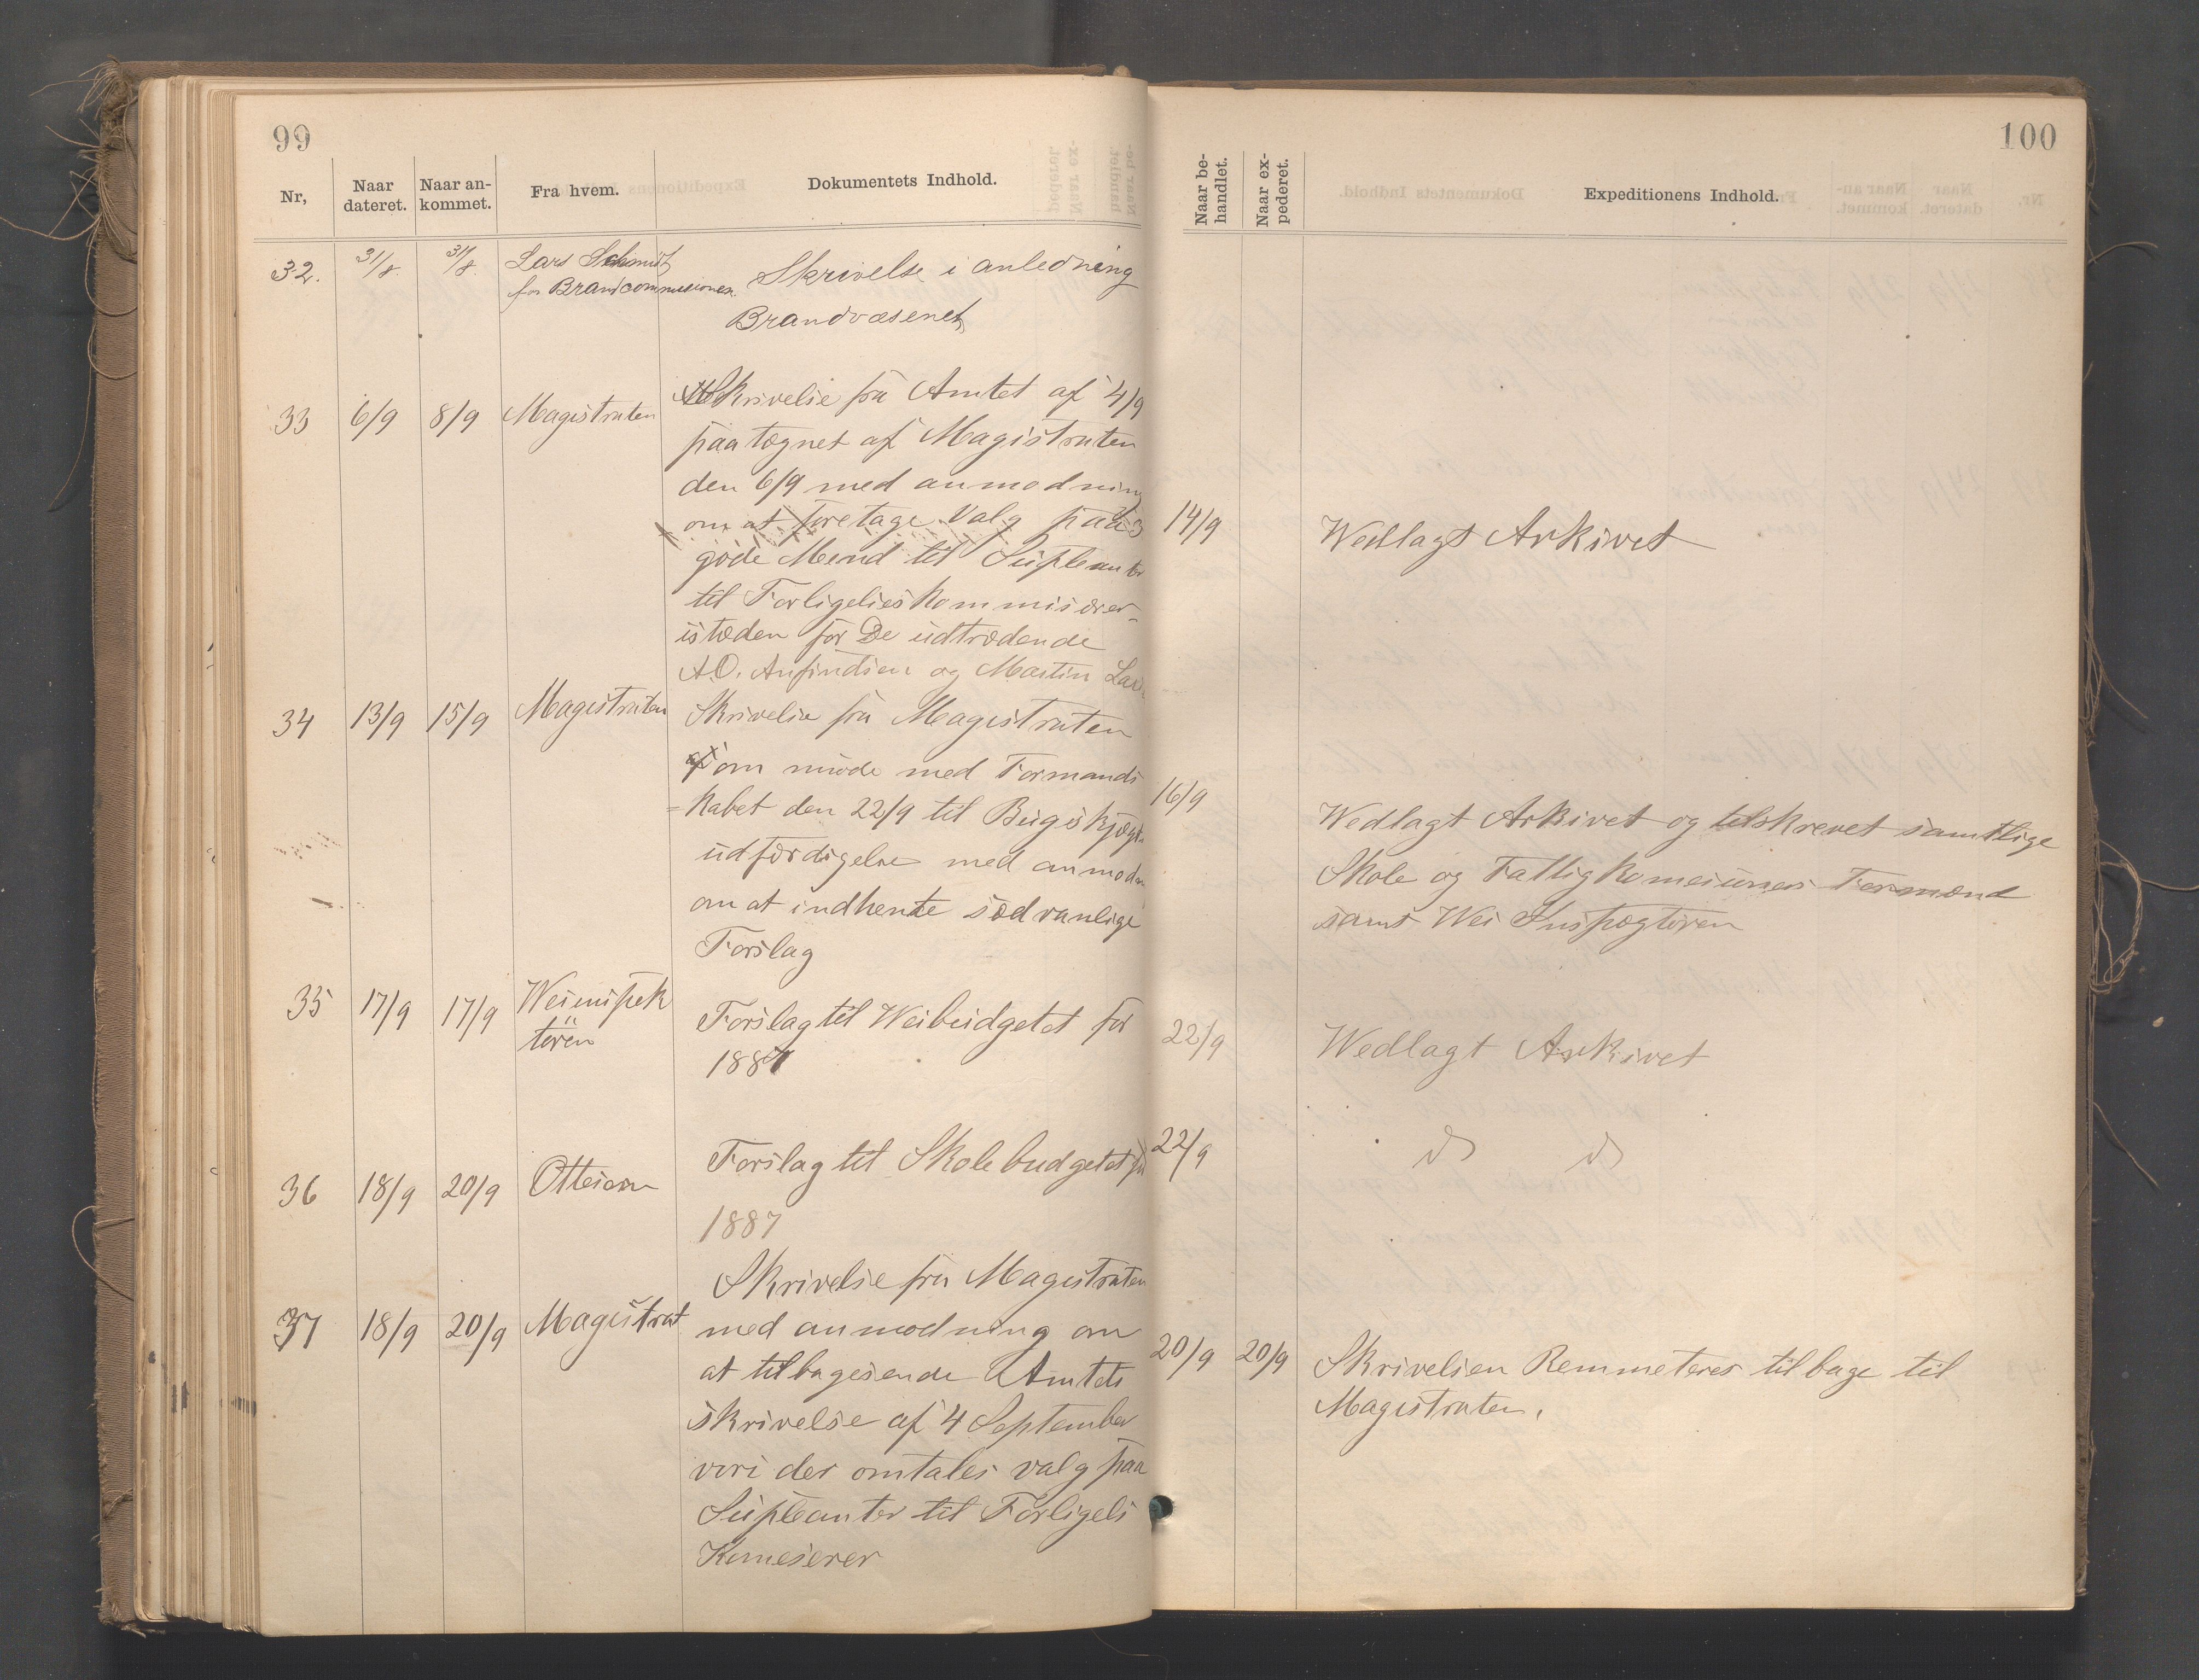 99
Nr,
Naar dateret.
Naar an-kommet.
Fra hvem.
Dokumentets Indhold.
32. 31/8. 31/8. Lars Schmidt
for Brandcommisionen.
Skrivelse i anledning
Brandvæsenet
33 6/9 8/9 Magistraten
Skrivelse fra Amtet af 4/9
paategnet af Magistraten
den 6/9 med anmodning
om at foretage Valg paa 3
gode Mend til Supleanter
til Forligelseskommisærer
isteden for De udtrædende
A.O. Anfindsen og Martin
34 13/9 15/9 Magistraten
Skrivelse fra Magistraten
af om møde med Formands
=kabet den 22/9 til
udfærdigelse med anmodn
om at indhente sædvanlige
Forslag
35 17/9 17/9 Weiinspek
tøren
Forslag til Weibudgetet for
1887
36 18/9 20/9 Ottesen
Forslag til Skolebudgetet for
1887
37 18/9 20/9 Magistrat
Skrivelse fra Magistraten
med anmodning om
at tilbagesende Amtets
skrivelse af 4 September
vori der omtales valg paa
Supleanter til Forligels
Komeserer
100
Naar be-handlet.
Naar ex-pederet.
Expeditionens Indhold.
14/9 Wedlagt Arkivet
16/9
Wedlagt Arkivet og tilskrevet samtlige
Skole og Fattigkomesiones Formænd
samt Wei Inspegtøren
22/9 Wedlagt Arkivet
22/9 do do
20/9 20/9 Skrivelsen Remmeteres tilbage til
Magistraten.